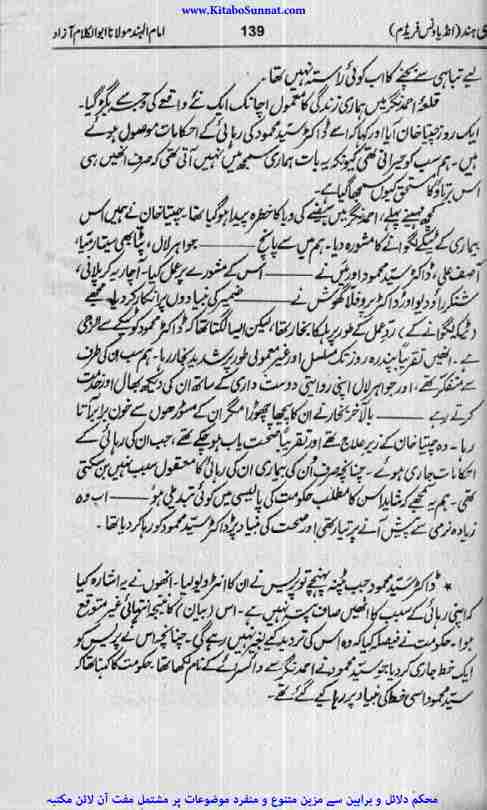 www.KitaboSunnat.com
ی ہند (انڈیا ونس فریڈم)
139
امام الہند مولانا ابوالکلام آزاد
لیے تباہی سے بچنے کا اب کوئی راستہ نہیں تھا۔
قلعۂ احمد نگر میں ہماری زندگی کا معمول اچانک ایک نئے واقعے کی وجہ سے بگڑ گیا۔
ایک روز چیتا خان آیا اور کہا کہ اسے ڈاکٹر سید محمود کی رہائی کے احکامات موصول ہوئے
ہیں۔ ہم سب کو حیرانی تھی کیونکہ یہ بات ہماری سمجھ میں نہیں آتی تھی کہ صرف انھیں ہی
اس برتاؤ کا مستحق کیوں سمجھا گیا ہے۔
کچھ مہینے پہلے، احمد نگر میں ہیضے کی وبا کا خطرہ پیدا ہو گیا تھا۔ چیتا خان نے ہمیں اس
بیماری کے ٹیکے لگوانے کا مشورہ دیا۔ ہم میں سے پانچ ـــــ جواہر لال، پٹابھی سیتا رمیا،
آصف علی، ڈاکٹر سید محمود اور میں نے ـــــ اس کے مشورے پر عمل کیا۔ اچاریہ کرپلانی،
شنکر راؤ دیو اور ڈاکٹر پرفلا گھوش نے ـــــ ضمیر کی بنیادوں پر انکار کر دیا۔ مجھے
(ٹیکہ لگوانے کے) ردِ عمل کے طور پر ہلکا بخار تھا، لیکن ایسا لگتا تھا کہ ڈاکٹر محمود کو ٹیکے سے الرجی
ہے۔ انھیں تقریباً پندرہ روز تک مسلسل اور غیر معمولی طور پر شدید بخار رہا۔ ہم سب ان کی طرف
سے متفکر تھے، اور جواہر لال اپنی روایتی دوست داری کے ساتھ ان کی دیکھ بھال اور خدمت
کرتے رہے ـــــ بالآخر بخار نے ان کا پیچھا چھوڑا مگر ان کے مسوڑھوں سے خون برابر آتا
رہا۔ وہ چیتا خان کے زیر علاج تھے اور تقریباً صحت یاب ہو چکے تھے، جب ان کی رہائی کے
احکامات جاری ہوئے۔ چنانچہ صرف ان کی بیماری ان کی رہائی کا معقول سبب نہیں بن سکتی
تھی۔ ہم یہ سمجھے کہ شاید اس کا مطلب حکومت کی پالیسی میں کوئی تبدیلی ہو ـــــ اب وہ
زیادہ نرمی سے پیش آنے پر تیار تھی اور صحت کی بنیاد پر ڈاکٹر سید محمود کو رہا کر دیا تھا۔
* ڈاکٹر سید محمود جب پٹنہ پہنچے تو پریس نے ان کا انٹرویو لیا۔ انھوں نے یہ اشارہ کیا
کہ اپنی رہائی کے سبب کا انھیں صاف پتہ نہیں ہے۔ اس (بیان) کا نتیجہ انتہائی غیر متوقع
ہوا۔ حکومت نے فیصلہ کیا کہ وہ اس کی تردید کیے بغیر نہیں رہے گی۔ چنانچہ اس نے پریس کو
ایک خط جاری کر دیا جو سید محمود نے احمد نگر سے وائسرائے کے نام لکھا تھا۔ حکومت کا کہنا تھا کہ
سید محمود اسی خط کی بنیاد پر رہا کیے گئے تھے۔
محکم دلائل و براہین سے مزین متنوع و منفرد موضوعات پر مشتمل مفت آن لائن مکتبہ